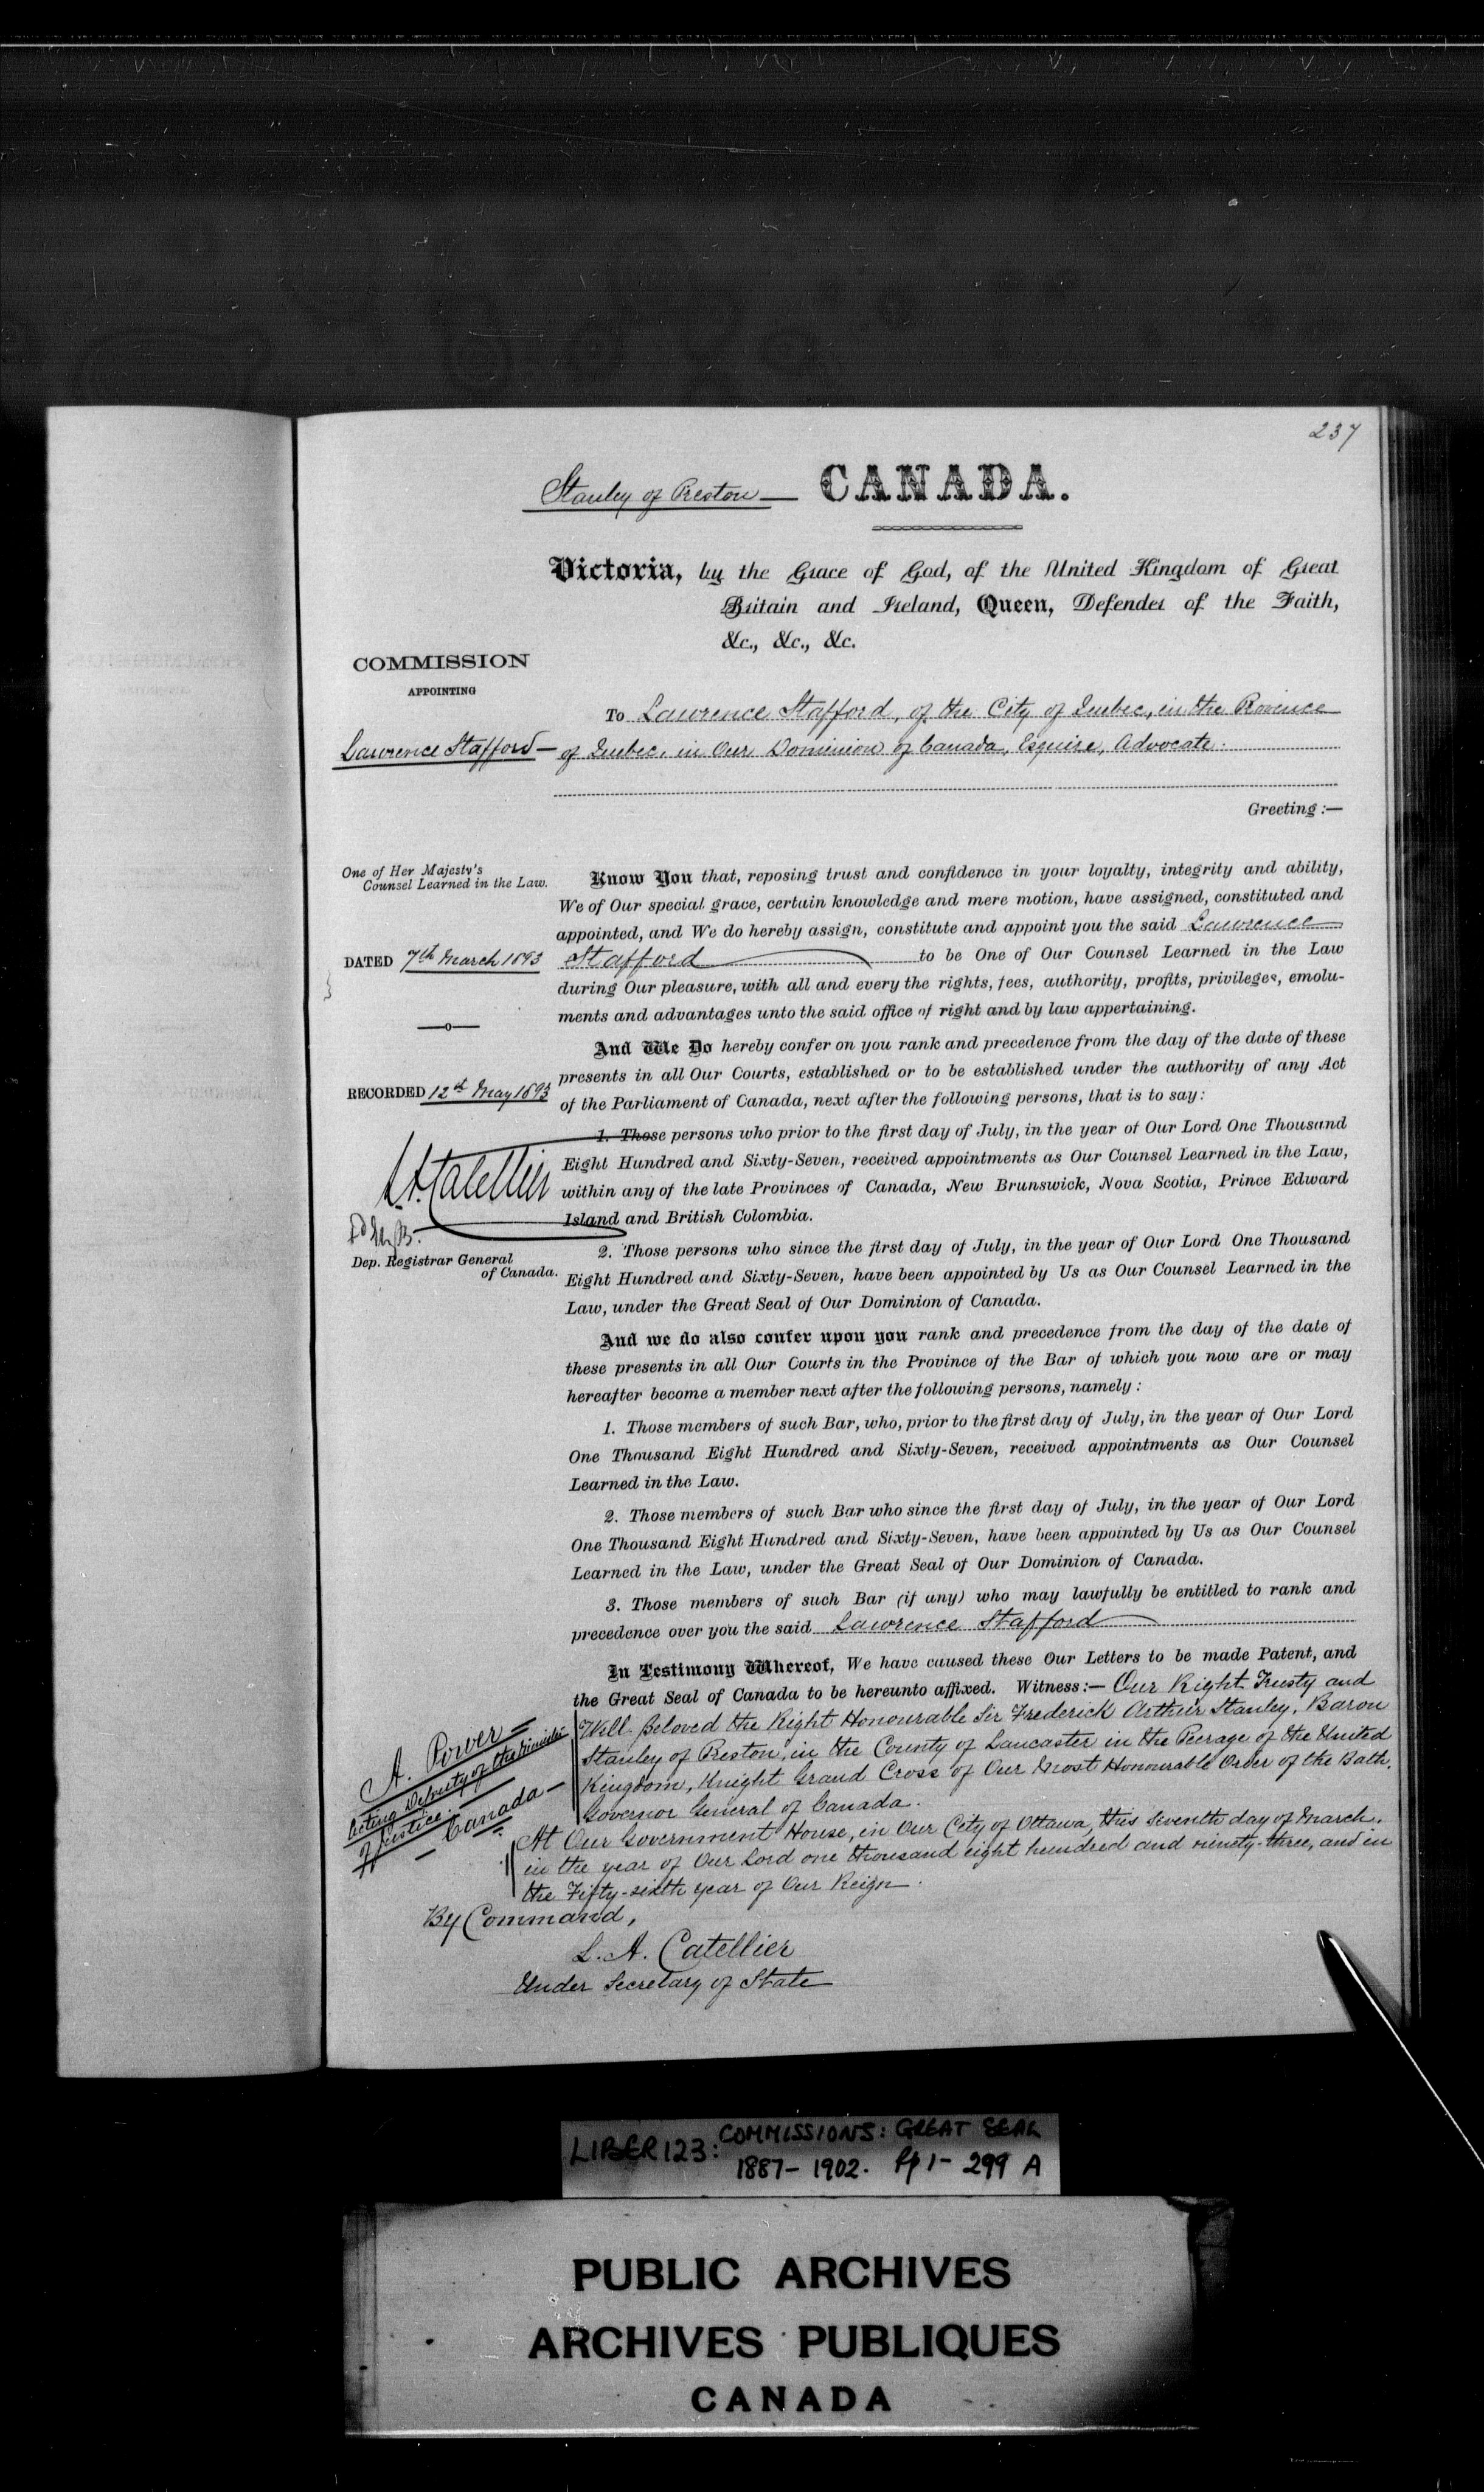 237
Stanley of Preston — CANADA.
Victoria, by the Grace of God, of the United Kingdom of Great
Britain and Ireland, Queen, Defender of the Faith,
&c., &c., &c.
COMMISSION
APPOINTING
Lawrence Stafford —
One of Her Majesty's
Counsel Learned in the Law.
DATED 7th March 1893
—o—
RECORDED 12th May 1893
L.A. Catellier
Dep. Registrar General
of Canada.
To Lawrence Stafford, of the City of Quebec, in the Province
of Quebec, in Our Dominion of Canada, Esquire, Advocate.
Greeting :—
Know You that, reposing trust and confidence in your loyalty, integrity and ability,
We of Our special grace, certain knowledge and mere motion, have assigned, constituted and
appointed, and We do hereby assign, constitute and appoint you the said Lawrence
Stafford to be One of Our Counsel Learned in the Law
during Our pleasure, with all and every the rights, fees, authority, profits, privileges, emolu-
ments and advantages unto the said office of right and by law appertaining.
And We Do hereby confer on you rank and precedence from the day of the date of these
presents in all Our Courts, established or to be established under the authority of any Act
of the Parliament of Canada, next after the following persons, that is to say:
1. Those persons who prior to the first day of July, in the year of Our Lord One Thousand
Eight Hundred and Sixty-Seven, received appointments as Our Counsel Learned in the Law,
within any of the late Provinces of Canada, New Brunswick, Nova Scotia, Prince Edward
Island and British Colombia.
2. Those persons who since the first day of July, in the year of Our Lord One Thousand
Eight Hundred and Sixty-Seven, have been appointed by Us as Our Counsel Learned in the
Law, under the Great Seal of Our Dominion of Canada.
And we do also confer upon you rank and precedence from the day of the date of
these presents in all Our Courts in the Province of the Bar of which you now are or may
hereafter become a member next after the following persons, namely:
1. Those members of such Bar, who, prior to the first day of July, in the year of Our Lord
One Thousand Eight Hundred and Sixty-Seven, received appointments as Our Counsel
Learned in the Law.
2. Those members of such Bar who since the first day of July, in the year of Our Lord
One Thousand Eight Hundred and Sixty-Seven, have been appointed by Us as Our Counsel
Learned in the Law, under the Great Seal of Our Dominion of Canada.
3. Those members of such Bar (if any) who may lawfully be entitled to rank and
precedence over you the said Lawrence Stafford
In Testimony Whereof, We have caused these Our Letters to be made Patent, and
the Great Seal of Canada to be hereunto affixed. Witness:— Our Right Trusty and
Well-Beloved the Right Honourable Sir Frederick Arthur Stanley, Baron
Stanley of Preston, in the County of Lancaster in the Peerage of the United
Kingdom, Knight Grand Cross of Our Most Honourable Order of the Bath,
Governor General of Canada.
A. Power
Acting Deputy of the Minister
of Justice.
— Canada —
At Our Government House, in Our City of Ottawa, this Seventh day of March,
in the year of Our Lord one thousand eight hundred and ninety-three, and in
the Fifty-sixth year of Our Reign.
By Command,
L. A. Catellier
Under Secretary of State
LIBER 123: COMMISSIONS: GREAT SEAL
1887 - 1902. Pp 1 - 299 A
PUBLIC ARCHIVES
ARCHIVES PUBLIQUES
CANADA